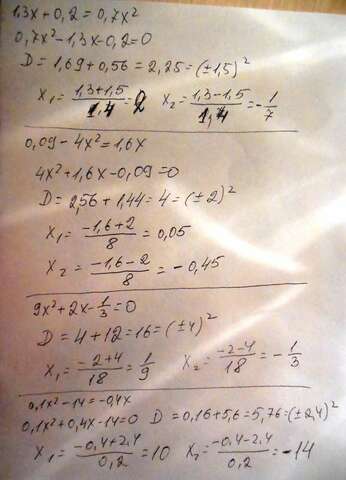 1,3x + 0,2 = 0,7x²
0,7x² - 1,3x - 0,2 = 0
D = 1,69 + 0,56 = 2,25 = (±1,5)²
x₁ = (1,3+1,5)/1,4 = 2 x₂ = (1,3-1,5)/1,4 = -1/7
0,09 - 4x² = 1,6x
4x² + 1,6x - 0,09 = 0
D = 2,56 + 1,44 = 4 = (±2)²
x₁ = (-1,6+2)/8 = 0,05
x₂ = (-1,6-2)/8 = -0,45
9x² + 2x - 1/3 = 0
D = 4 + 12 = 16 = (±4)²
x₁ = (-2+4)/18 = 1/9 x₂ = (-2-4)/18 = -1/3
0,1x² - 14 = -0,4x
0,1x² + 0,4x - 14 = 0 D = 0,16 + 5,6 = 5,76 = (±2,4)²
x₁ = (-0,4+2,4)/0,2 = 10 x₂ = (-0,4-2,4)/0,2 = -14